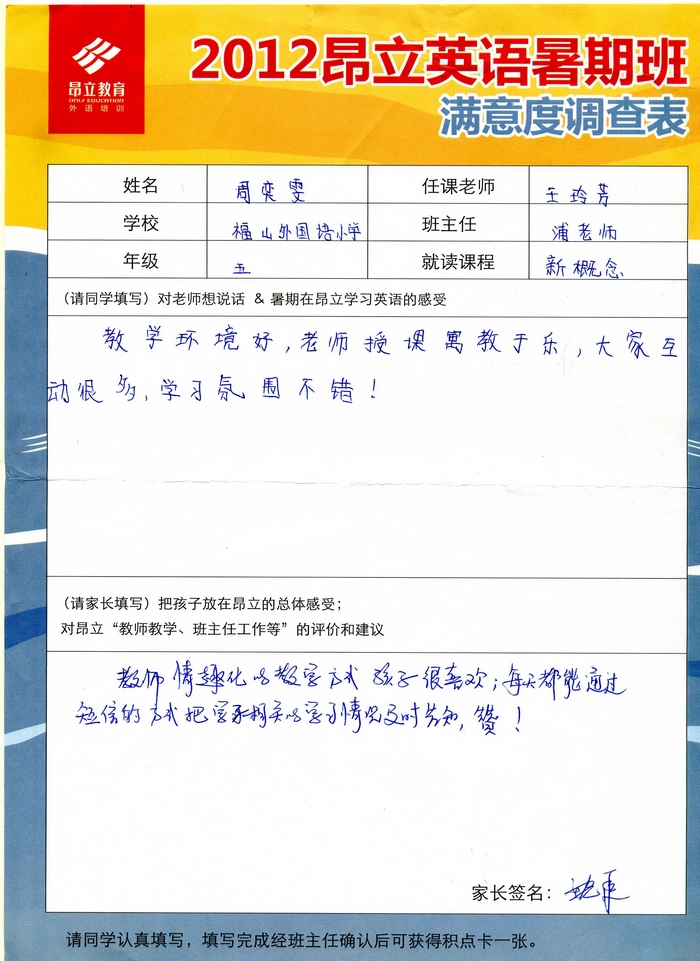 昂立教育
ONLY EDUCATION
外语培训
2012昂立英语暑期班
满意度调查表
姓名 周奕雯 任课老师 王玲芳
学校 福山外国语小学 班主任 浦老师
年级 五 就读课程 新概念
（请同学填写）对老师想说话 & 暑期在昂立学习英语的感受
教学环境好,老师授课寓教于乐,大家互
动很多,学习氛围不错!
（请家长填写）把孩子放在昂立的总体感受；
对昂立“教师教学、班主任工作等”的评价和建议
教师情趣化的教学方式孩子很喜欢;每天都能通过
短信的方式把学习相关的学习情况及时告知,赞!
家长签名：
请同学认真填写，填写完成经班主任确认后可获得积点卡一张。